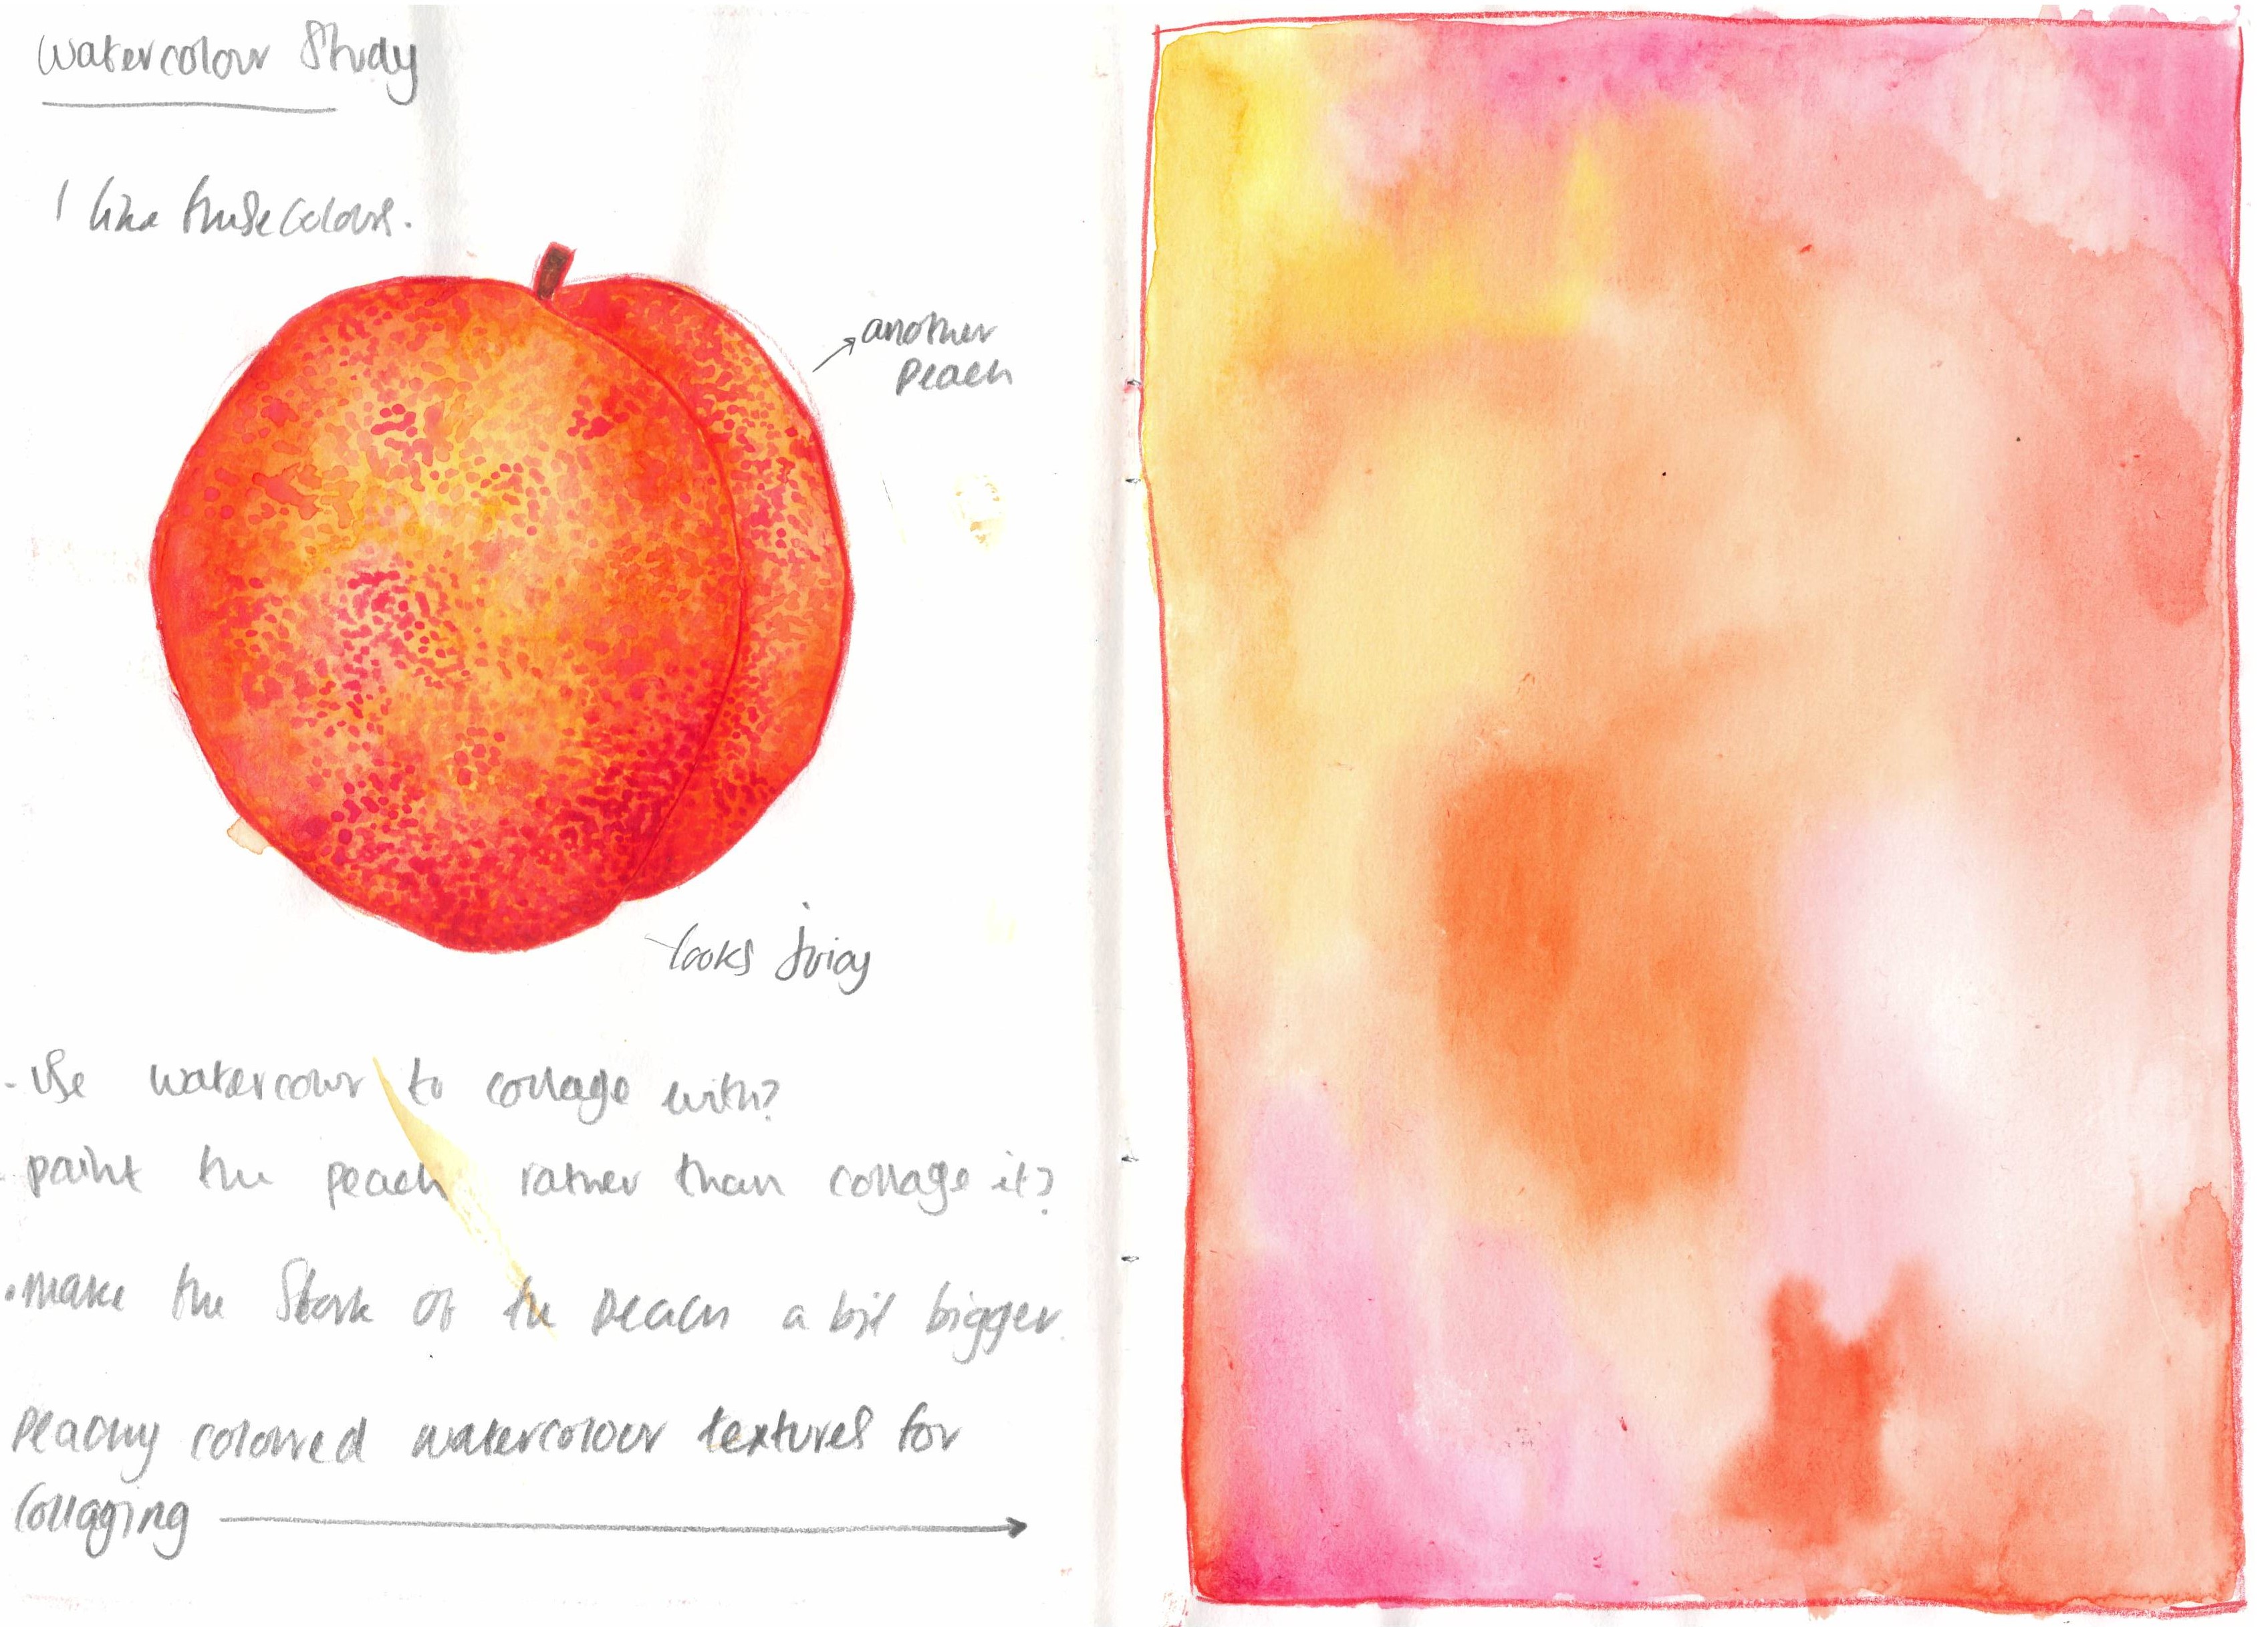 Watercolour Study
I like these colours.
another
peach
looks juicy
- Use watercolour to collage with?
- paint the peach rather than collage it?
• Make the Stork of the peach a bit bigger.
Peachy coloured watercolour textures for
Collaging